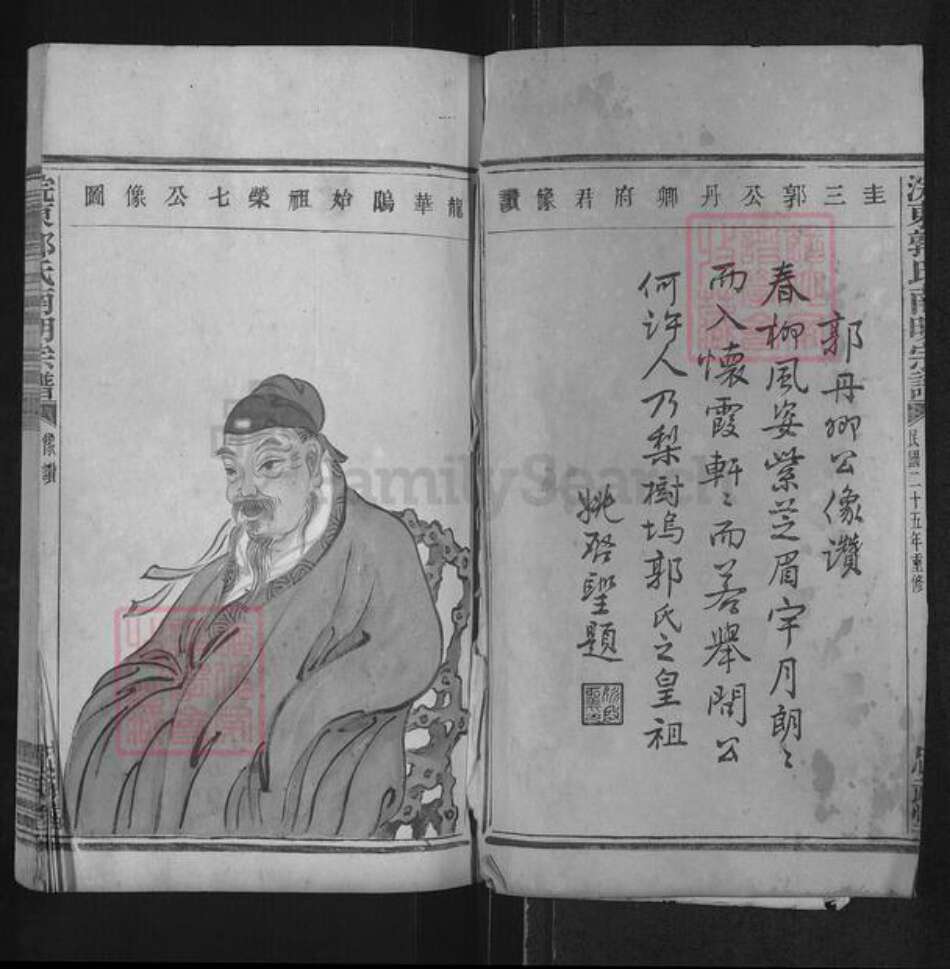 浣東郭氏南明宗譜
民國二十五年重修
圭三郭公丹卿府君像讚
郭丹卿公像讚
春柳風姿紫芝眉宇月朗〻
而入懷霞軒〻而若舉問公
何許人乃梨樹塢郭氏之皇祖
姚啓聖題
龍華鷴始祖榮七公像圖
浣東郭氏南明宗譜
像讚
FamilySearch